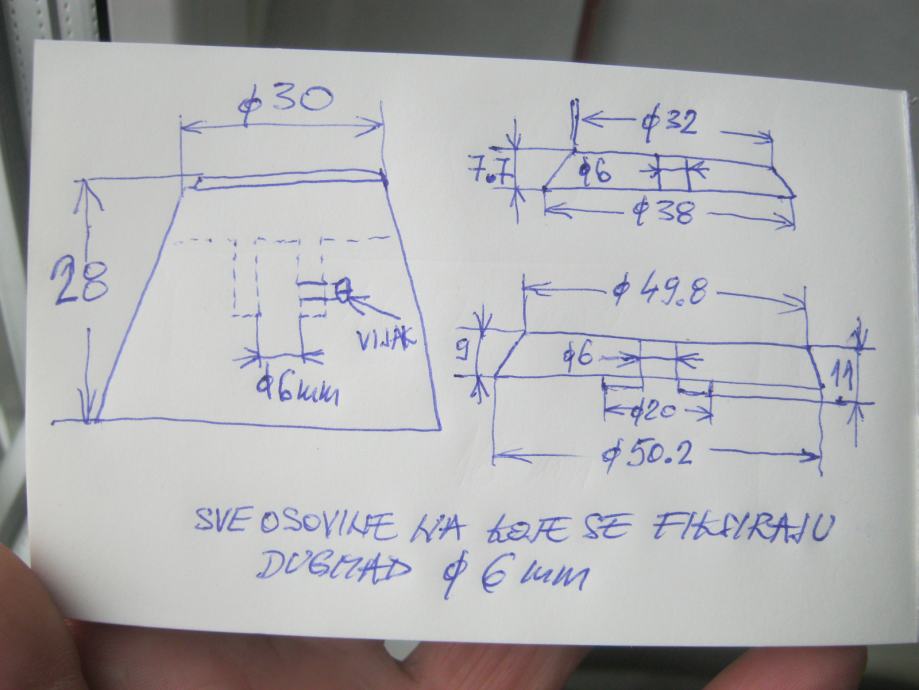 ϕ30
28
VIJAK
ϕ6mm
ϕ32
7.7
ϕ6
ϕ38
ϕ49.8
9
ϕ6
11
ϕ20
ϕ50.2
SVE OSOVINE NA KOJE SE FIKSIRAJU
DUGMAD ϕ 6 mm